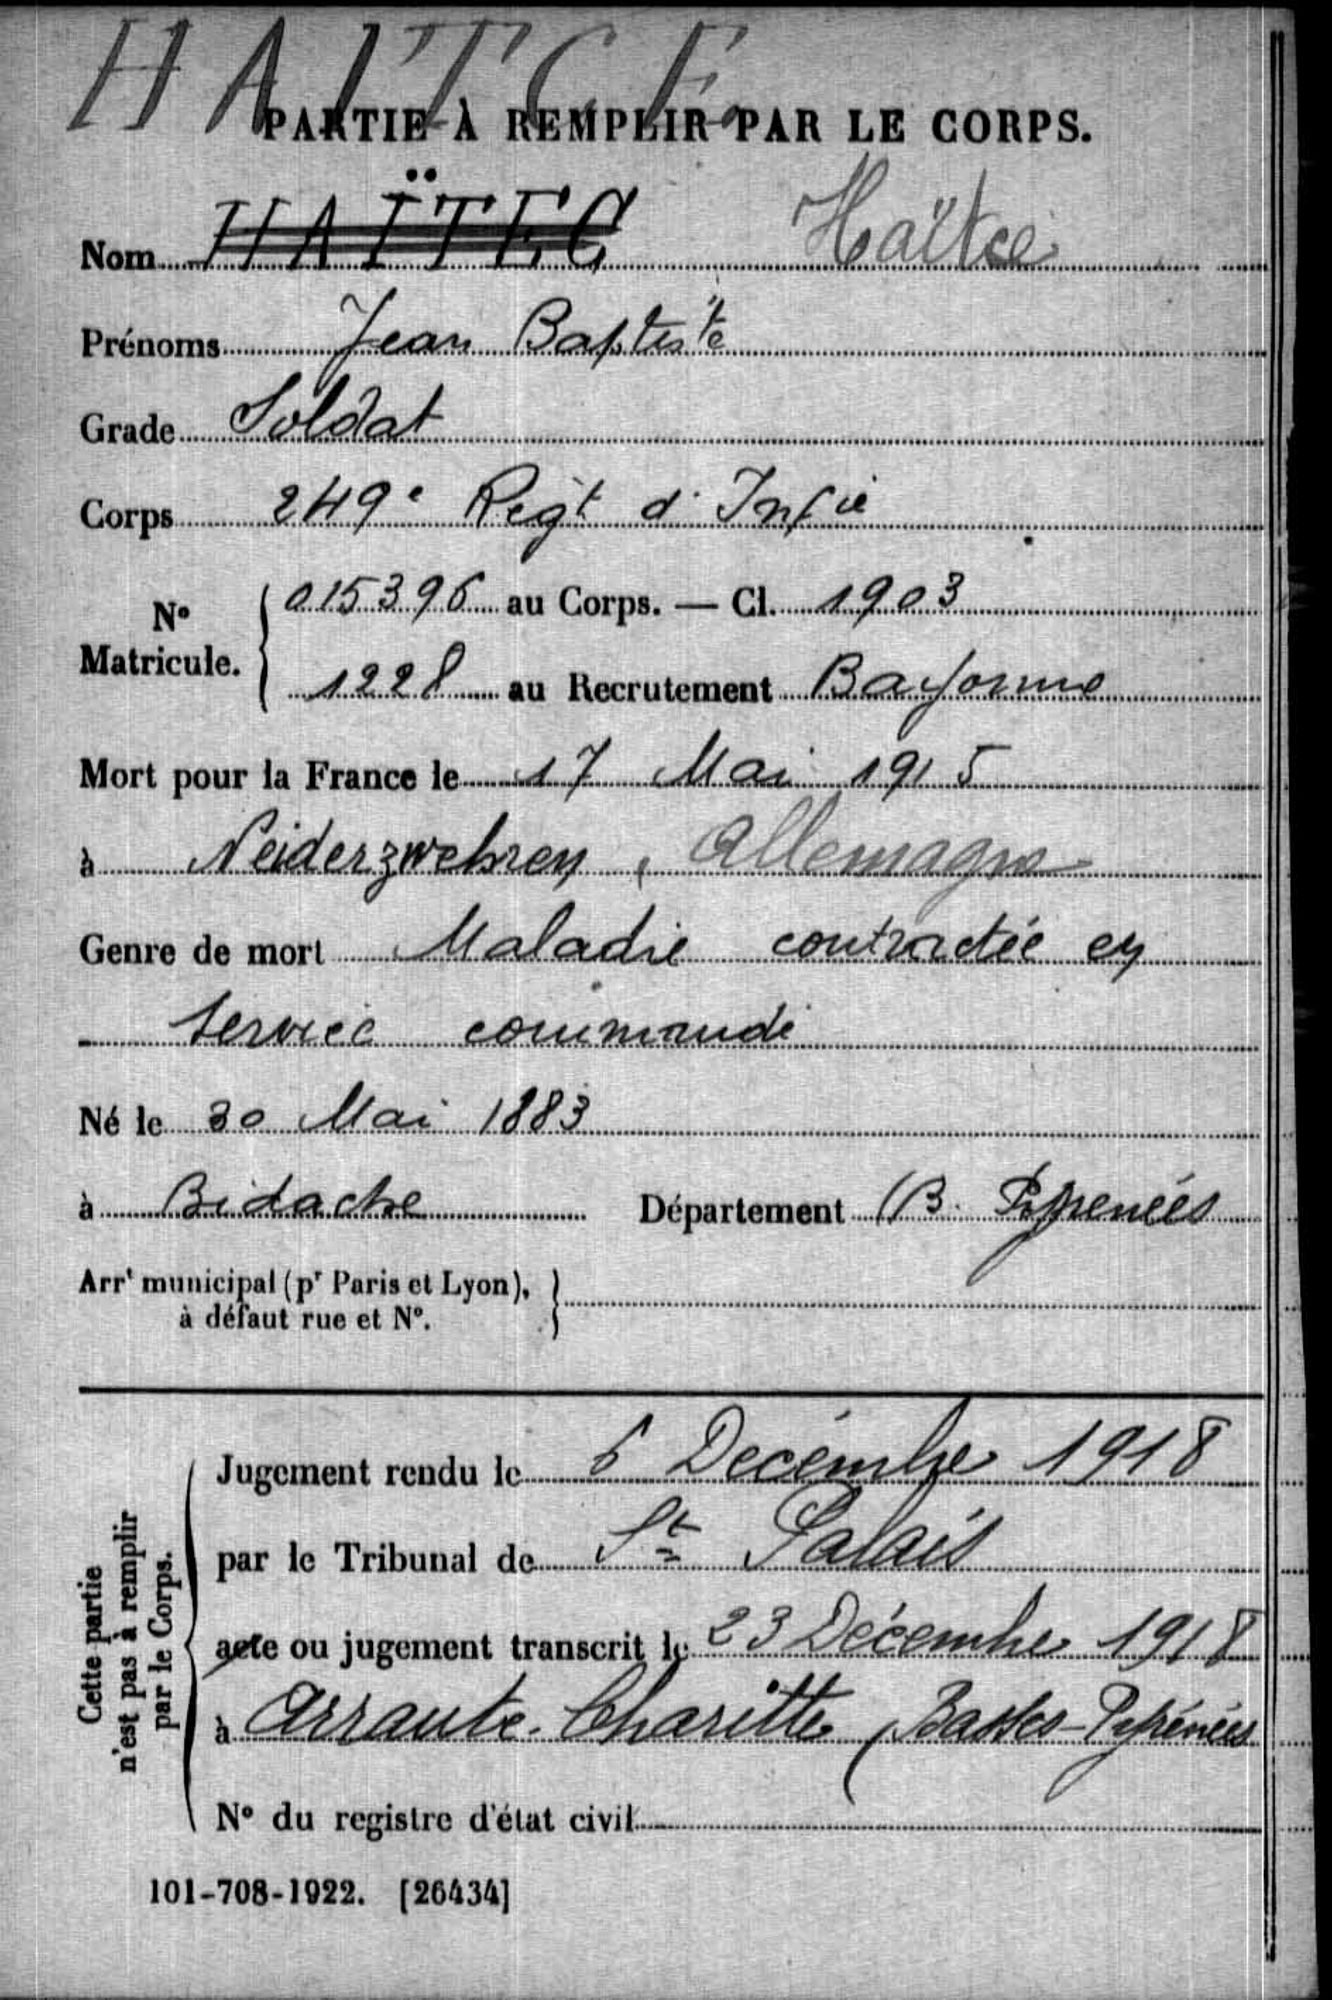 HAITCE
PARTIE À REMPLIR PAR LE CORPS.
Nom HAÏTEC Haïtce
Prénoms Jean Baptiste
Grade Soldat
Corps 249e Regt d'Infie
No Matricule. { 015396 au Corps. — Cl. 1903
1228 au Recrutement Bayonne
Mort pour la France le 17 Mai 1915
à Neiderzwehren, Allemagne
Genre de mort Maladie contractée en
service commandé
Né le 30 Mai 1883
à Bidache Département (B. Pyrenées
Arrt municipal (pr Paris et Lyon), }
à défaut rue et No.
Cette partie
n'est pas à remplir
par le Corps.
Jugement rendu le 6 Decembre 1918
par le Tribunal de St Palais
acte ou jugement transcrit le 23 Décembre 1918
à Arraute-Charitte (Basses-Pyrénées
No du registre d'état civil
101-708-1922. [26434]